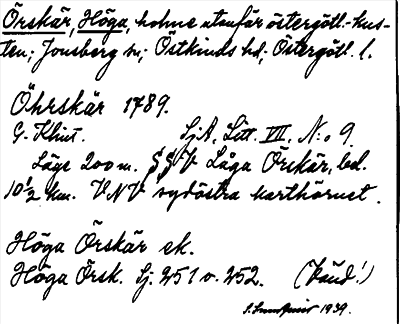 Örskär, Höga, holme utanför östergötl.-kus-
ten; Jonsberg sn; Östkinds hd; Östergötl. l.
Öhrskär 1789.
G. Klint. SjA, Litt. VIII, N:o 9.
Läge 200 m. SSV Låga Örskär, bel.
10 1/2 km. VNV sydöstra karthörnet.
Höga Örskär ek.
Höga Örsk. Sj. 251 o. 252. (Känd!)
1939.